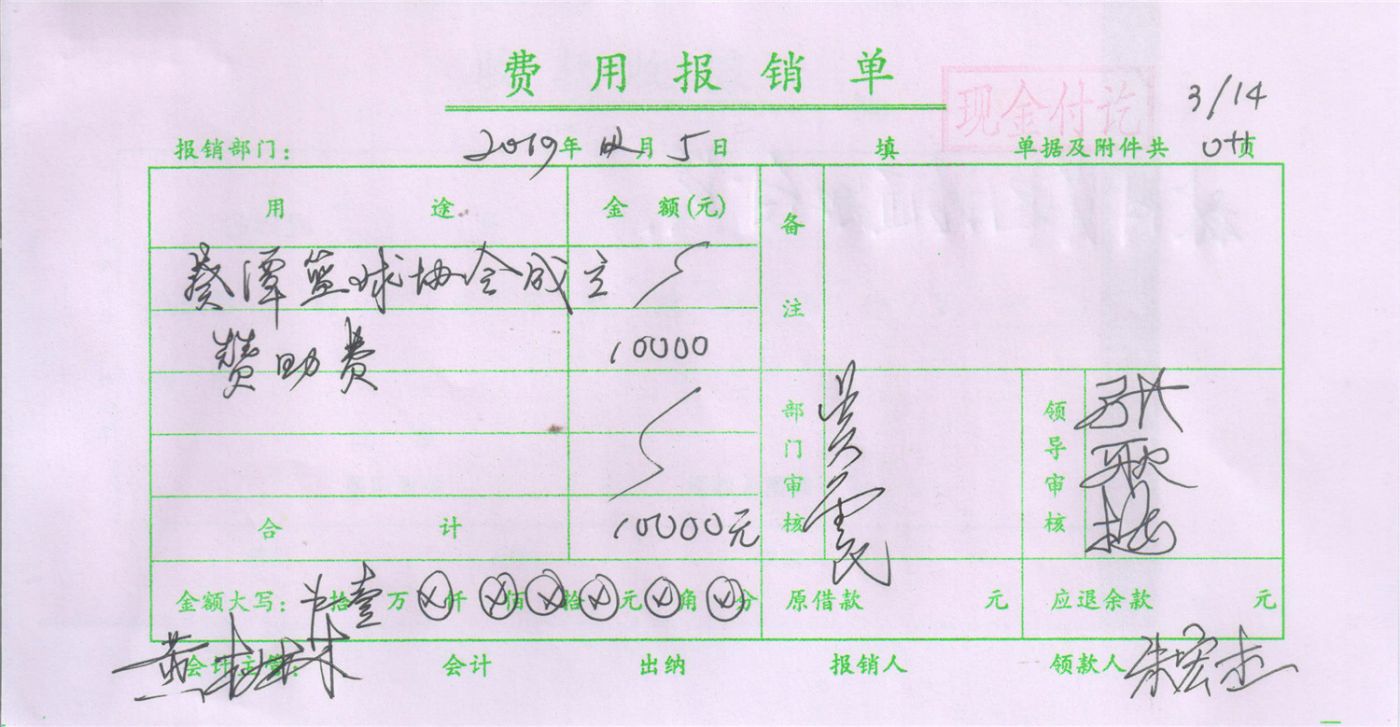 费用报销单
现金付讫
3/14
报销部门： 2019年 月5日 填 单据及附件共 页
用途 金额(元) 备注
葵潭篮球协会成立
赞助费 10000
部门审核 领导审核
合计 10000元
金额大写： 拾壹万⊗仟⊗佰⊗拾⊗元⊗角⊗分 原借款 元 应退余款 元
会计主管： 会计 出纳 报销人 领款人 朱宏杰